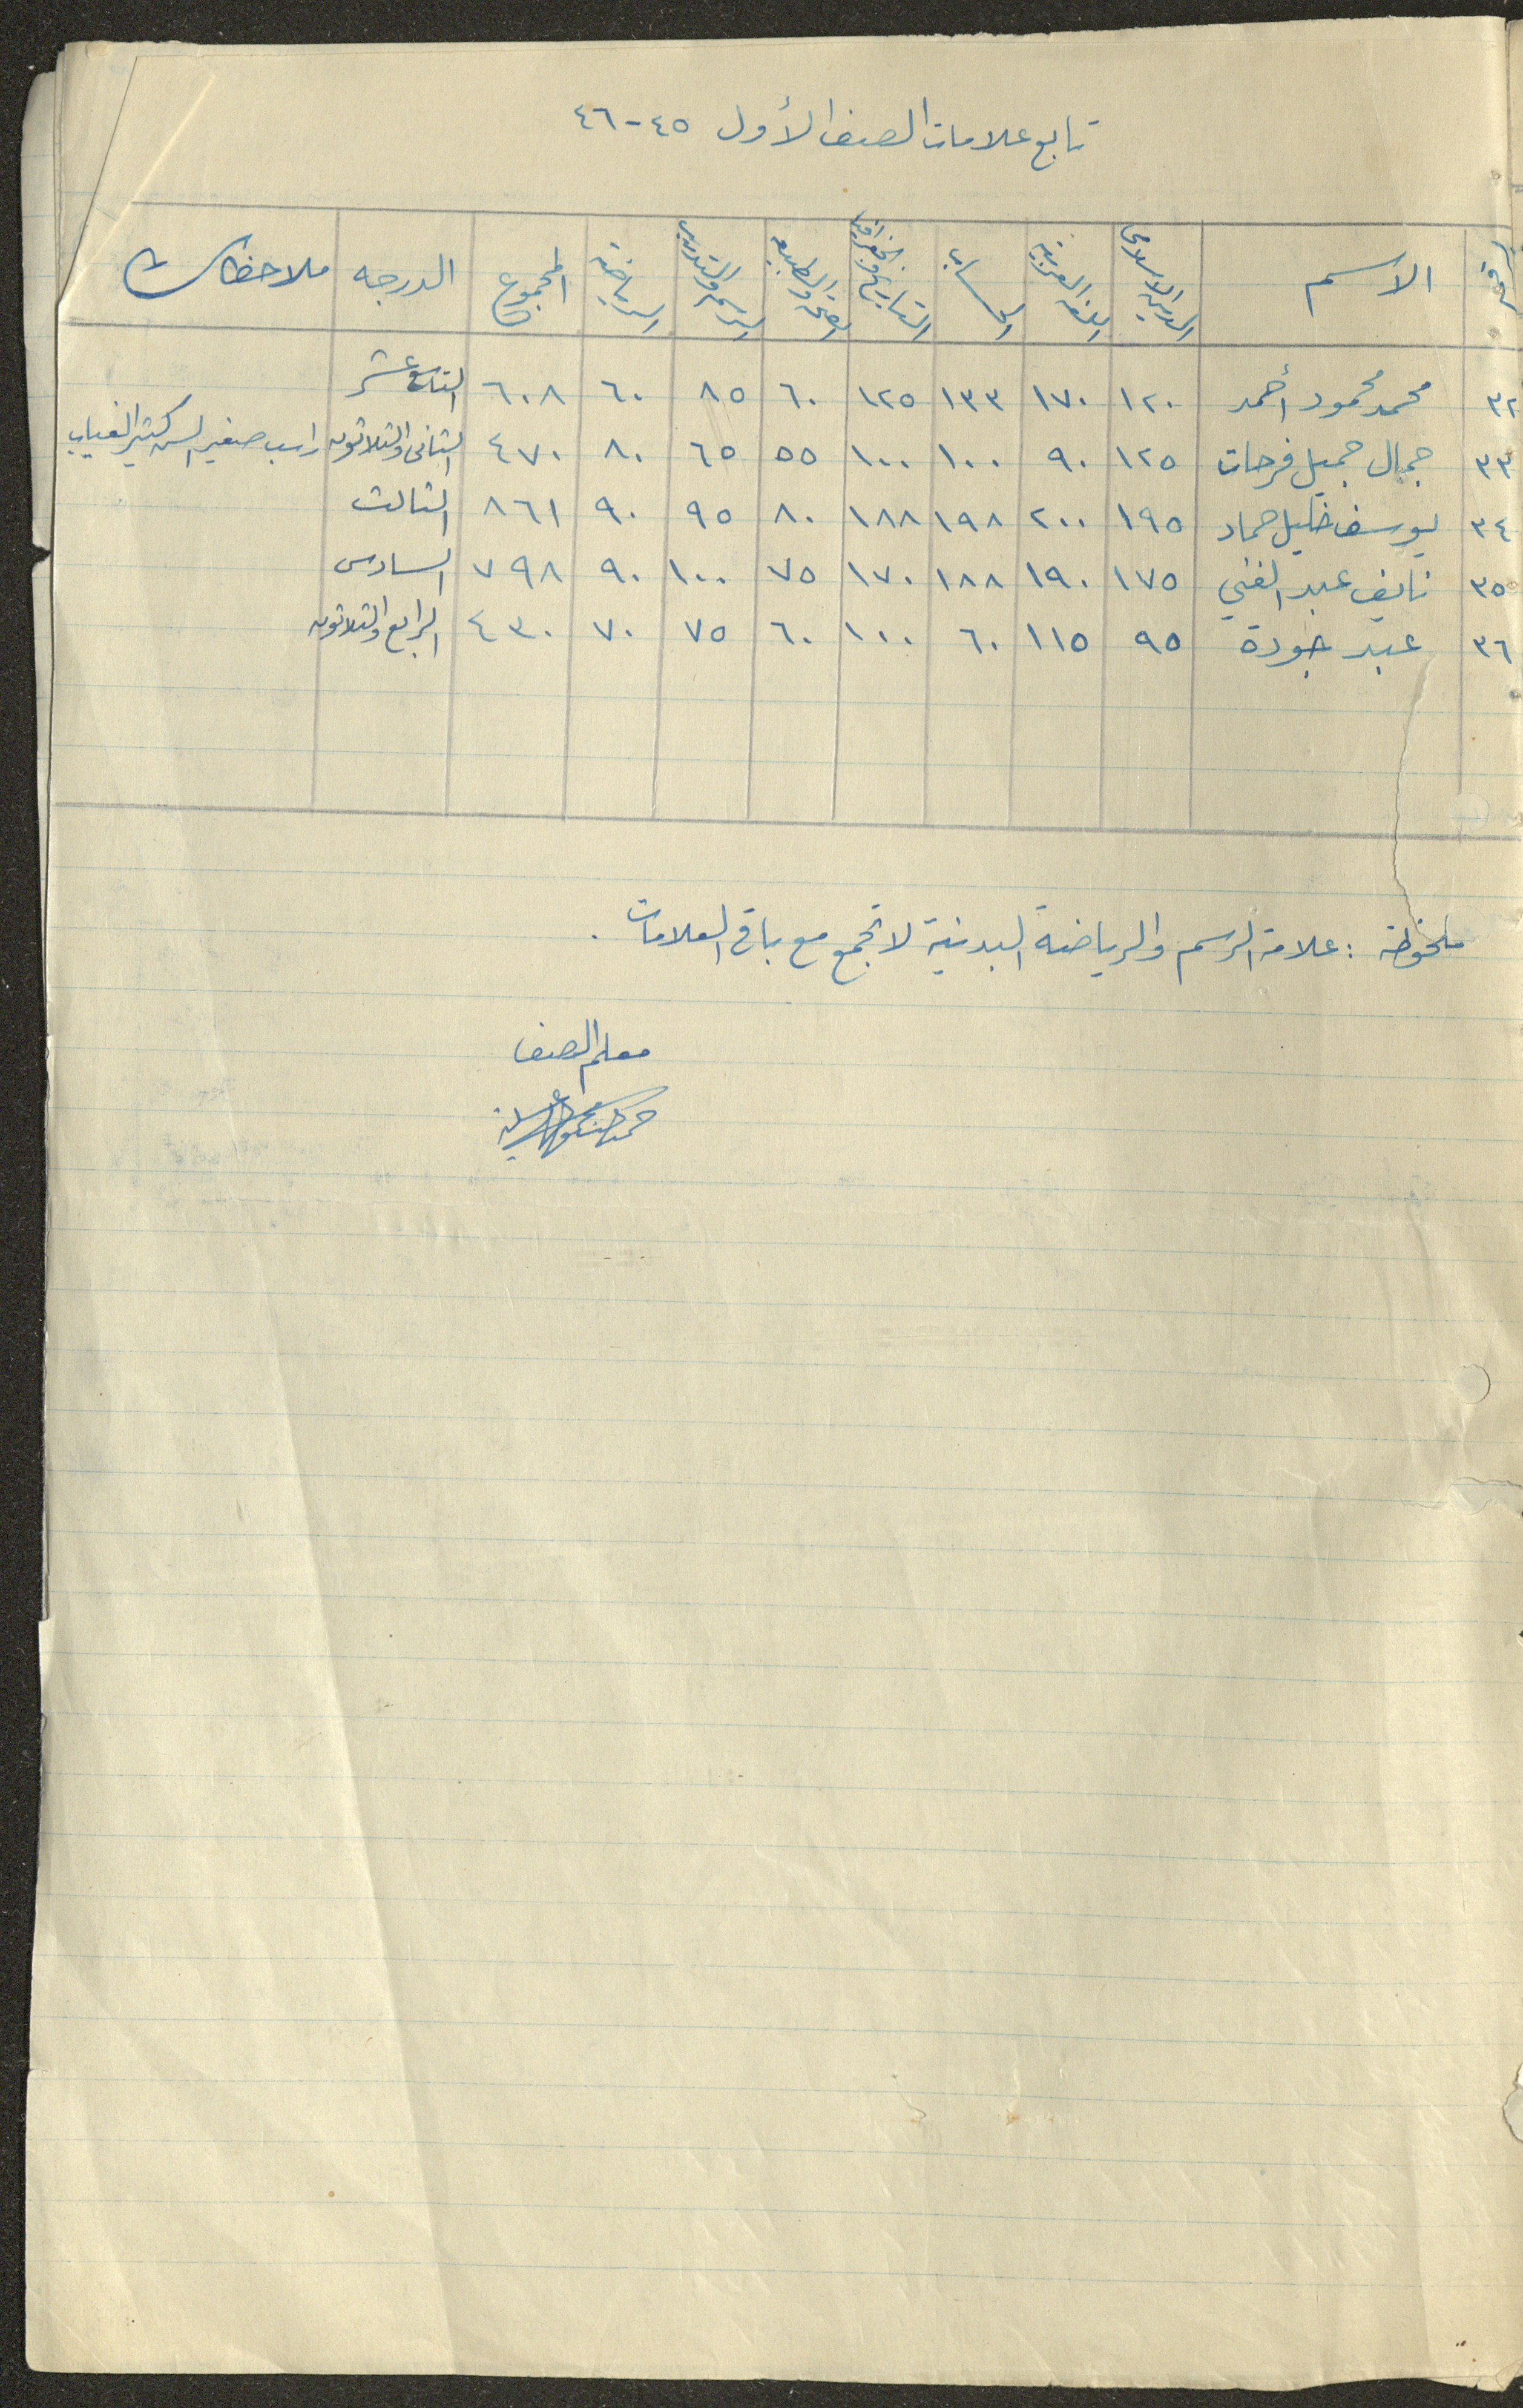 تابع علامات الصف الأول ٤٥-٤٦
الاسم الدين الاسلامي اللغة العربية الحساب التاريخ والجغرافيا الصحة والطبيعة الرسم والتدريب الرياضة المجموع الدرجه ملاحظات
٣٢ محمد محمود أحمد ١٢٠ ١٧٠ ١٣٣ ١٢٥ ٦٠ ٨٥ ٦٠ ٦٠٨ التاسع عشر
٣٣ جمال جميل فرحات ١٢٥ ٩٠ ١٠٠ ١٠٠ ٥٥ ٦٥ ٨٠ ٤٧٠ الثاني والثلاثون راسب صغير السن كثير الغياب
٣٤ يوسف خليل حماد ١٩٥ ٢٠٠ ١٩٨ ١٨٨ ٨٠ ٩٥ ٩٠ ٨٦١ الثالث
٣٥ نايف عبد الغني ١٧٥ ١٩٠ ١٨٨ ١٧٠ ٧٥ ١٠٠ ٩٠ ٧٩٨ السادس
٣٦ عبد جودة ٩٥ ١١٥ ٦٠ ١٠٠ ٦٠ ٧٥ ٧٠ ٤٣٠ الرابع والثلاثون
ملحوظة : علامة الرسم والرياضة البدنية لا تجمع مع باقي العلامات .
معلم الصف